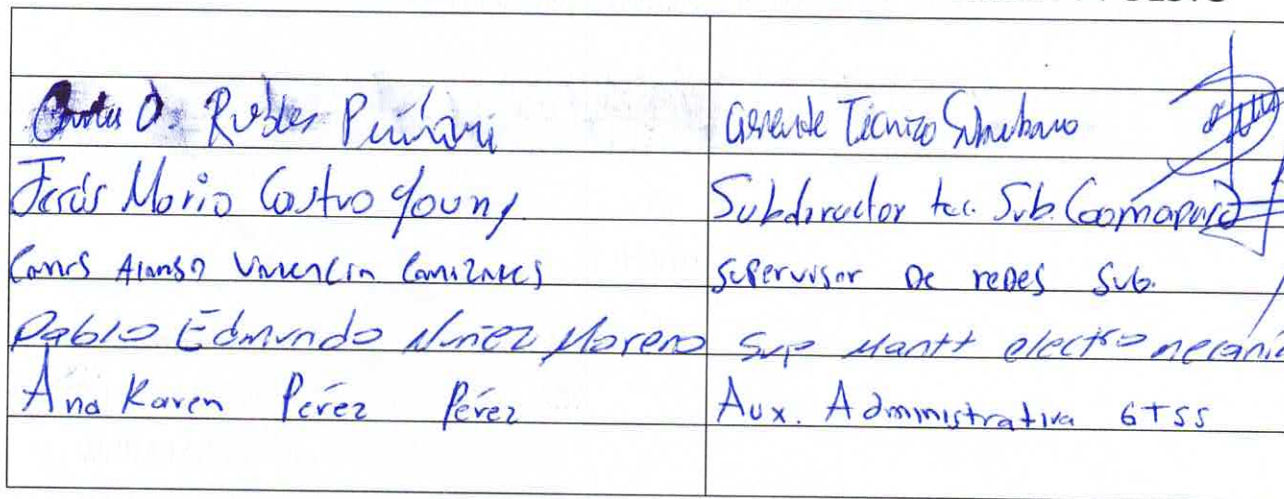 O. Robles
Gerente Técnico Suburbano
Jesús Mario Castro Young
Subdirector tec. Sub. Oomapasc
Carlos Alonso Valencia Canizales
Supervisor De redes Sub.
Pablo Edmundo Nuñez Moreno
Sup Mantt electromecánic
Ana Karen Pérez Pérez
Aux. Administrativa GTSS